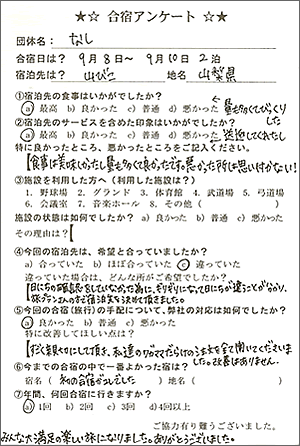 ★☆ 合宿アンケート ☆★
団体名： なし
合宿日は？ 9月8日～ 9月10日 2泊
宿泊先は？ 山びこ 地名 山梨県
①宿泊先の食事はいかがでしたか？ 量も多くてびっくりした
ⓐ最高 b)良かった c)普通 d)悪かった
②宿泊先のサービスを含めた印象はいかがでしたか？
ⓐ最高 b)良かった c)普通 d)悪かった 送迎してくれたし
特に良かったところ、悪かったところをご記入ください。
食事は美味しかったし量も多くて良かったです。悪かった所は思い付かない！
③施設を利用した方へ（利用した施設は？）
1. 野球場 2. グランド 3. 体育館 4. 武道場 5. 弓道場
6. 会議室 7. 音楽ホール 8. その他（ ）
施設の状態は如何でしたか？ a)良かった b)普通 c)悪かった
その理由は？
④今回の宿泊先は、希望と合っていましたか？
a)合っていた b)ほぼ合っていた ⓒ違っていた
違っていた場合は、どんな所がご希望でしたか？
日にちの確認をしていなかった為に、ぎりぎりになって日にちが違うことが分かり、
急プランさんのお宿泊先を決めて頂きました。
⑤今回の合宿(旅行)の手配について、弊社の対応は如何でしたか？
ⓐ良かった b)普通 c)悪かった
特に改善してほしい点は？
すごく親切にして頂き、私達のワガママだらけの注文を全て聞いてくださいました。改善はありません。
⑥今までの合宿の中で一番よかった宿は？
宿名（ 初の合宿がココでした ）地名（ ）
⑦年間、何回合宿に行きますか？
ⓐ1回 b)2回 c)3回 d)4回以上
ご協力有り難うございました。
みんな大満足の楽しい旅になりました。ありがとうございました。